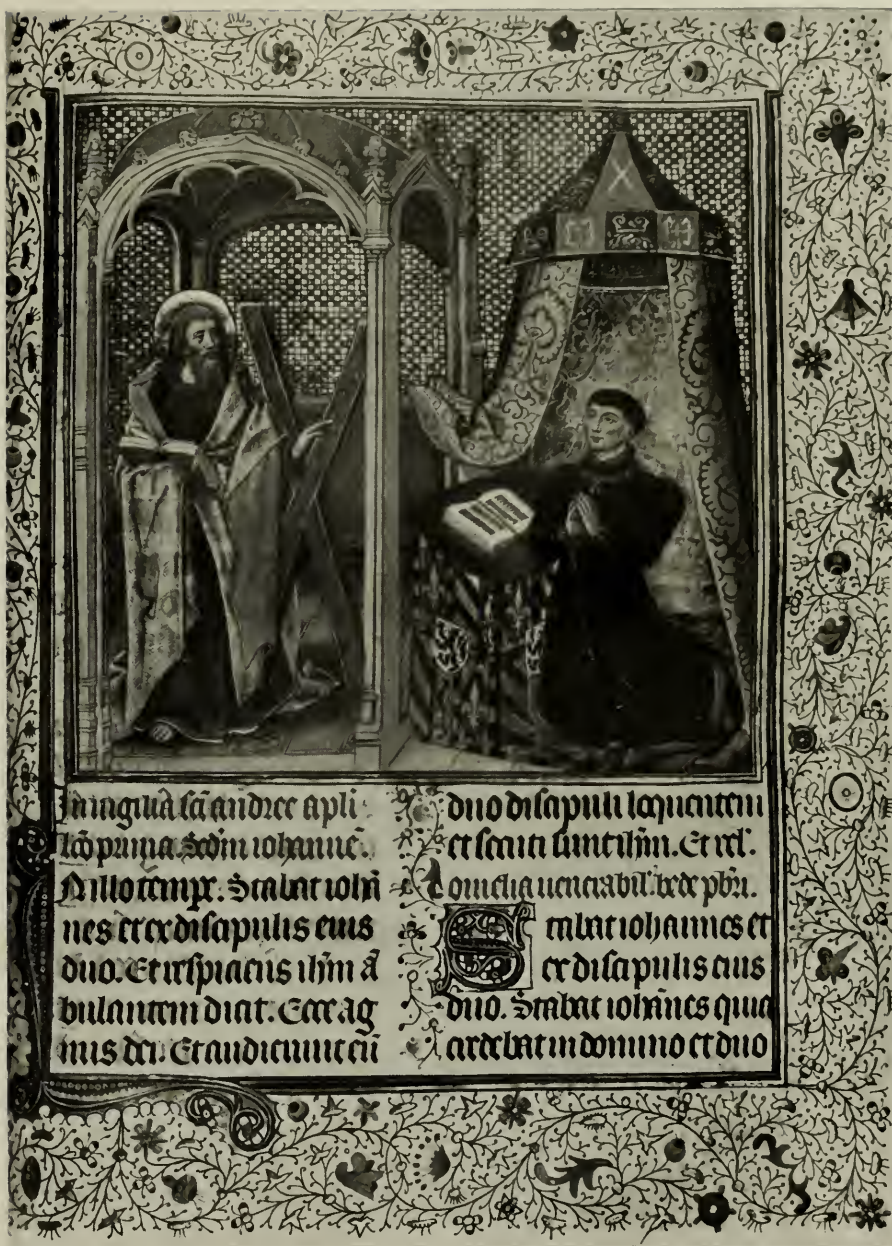 In uigilia sc̄i andree apl̄i
lc̄o prima. Scdm̄ iohannē.
In illo tempr̄. Stabat ioha̅
nes et ex discipulis eius
duo. Et respiciens ih̄m ā
bulantem dicit. Ecce ag
nus dei. Et audierunt eū
duo discipuli loquentem
et secuti sunt ih̄m. Et rel̄.
Omelia uenerabil̄. bede pb̄ri.
Stabat iohannes et
ex discipulis eius
duo. Stabat ioh̄nes quia
ardebat in domino et duo